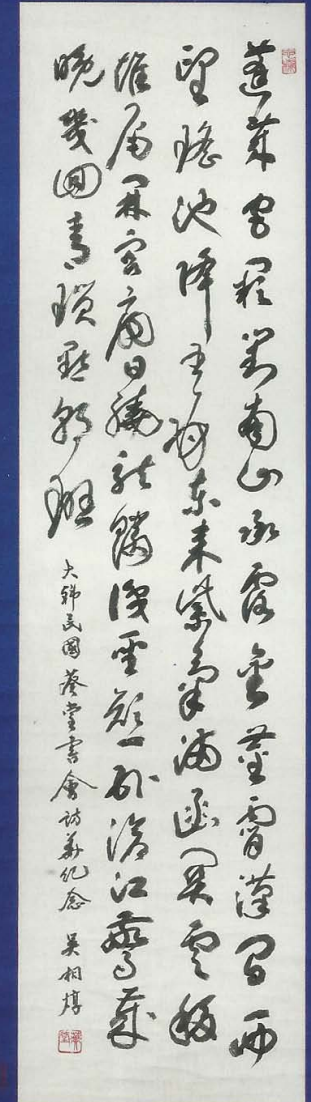 蓬萊宮闕對南山承露金莖霄漢間西
望瑤池降王母東來紫氣滿函關雲移
雉尾開宮扇日繞龍鱗識聖顏一臥滄江驚歲
晚幾回青瑣點朝班
大韓民國葵堂書會訪華紀念 吳相